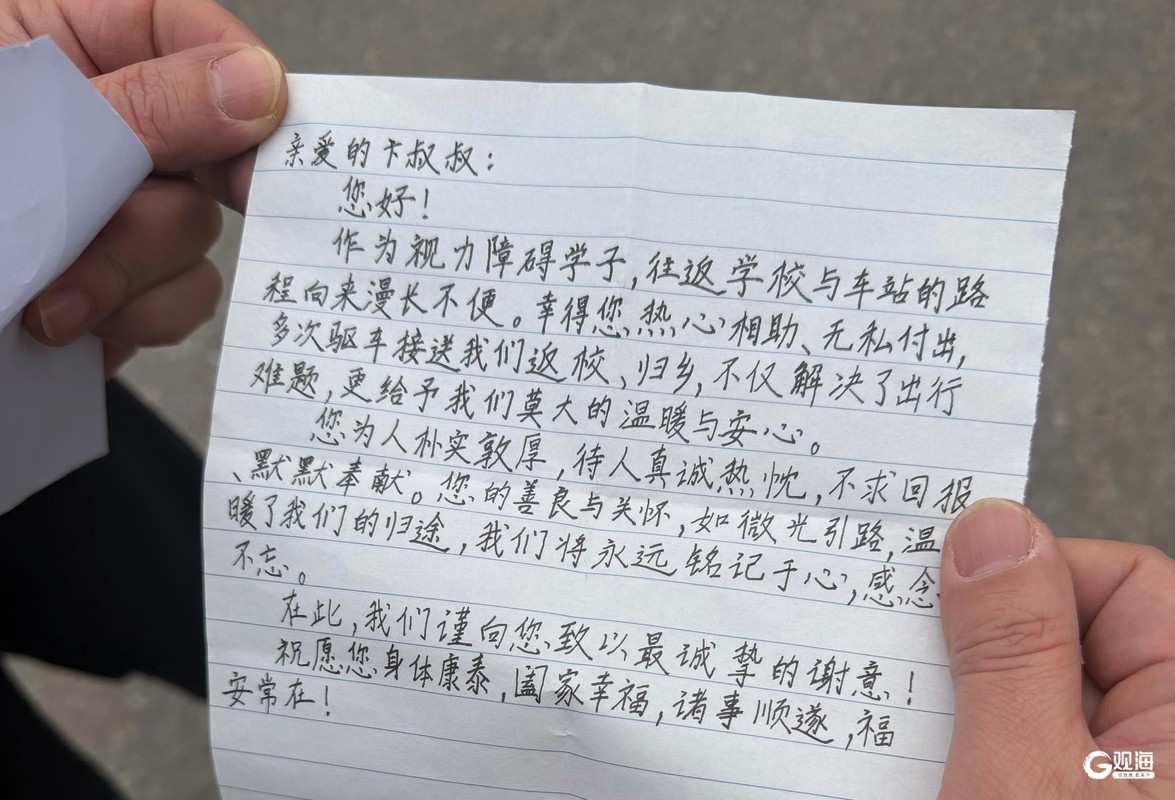 亲爱的卞叔叔：
您好！
作为视力障碍学子，往返学校与车站的路
程向来漫长不便。幸得您热心相助、无私付出，
多次驱车接送我们返校、归乡，不仅解决了出行
难题，更给予我们莫大的温暖与安心。
您为人朴实敦厚，待人真诚热忱，不求回报
、默默奉献。您的善良与关怀，如微光引路，温
暖了我们的归途，我们将永远铭记于心，感念
不忘。
在此，我们谨向您致以最诚挚的谢意！
祝愿您身体康泰，阖家幸福，诸事顺遂，福
安常在！
观海